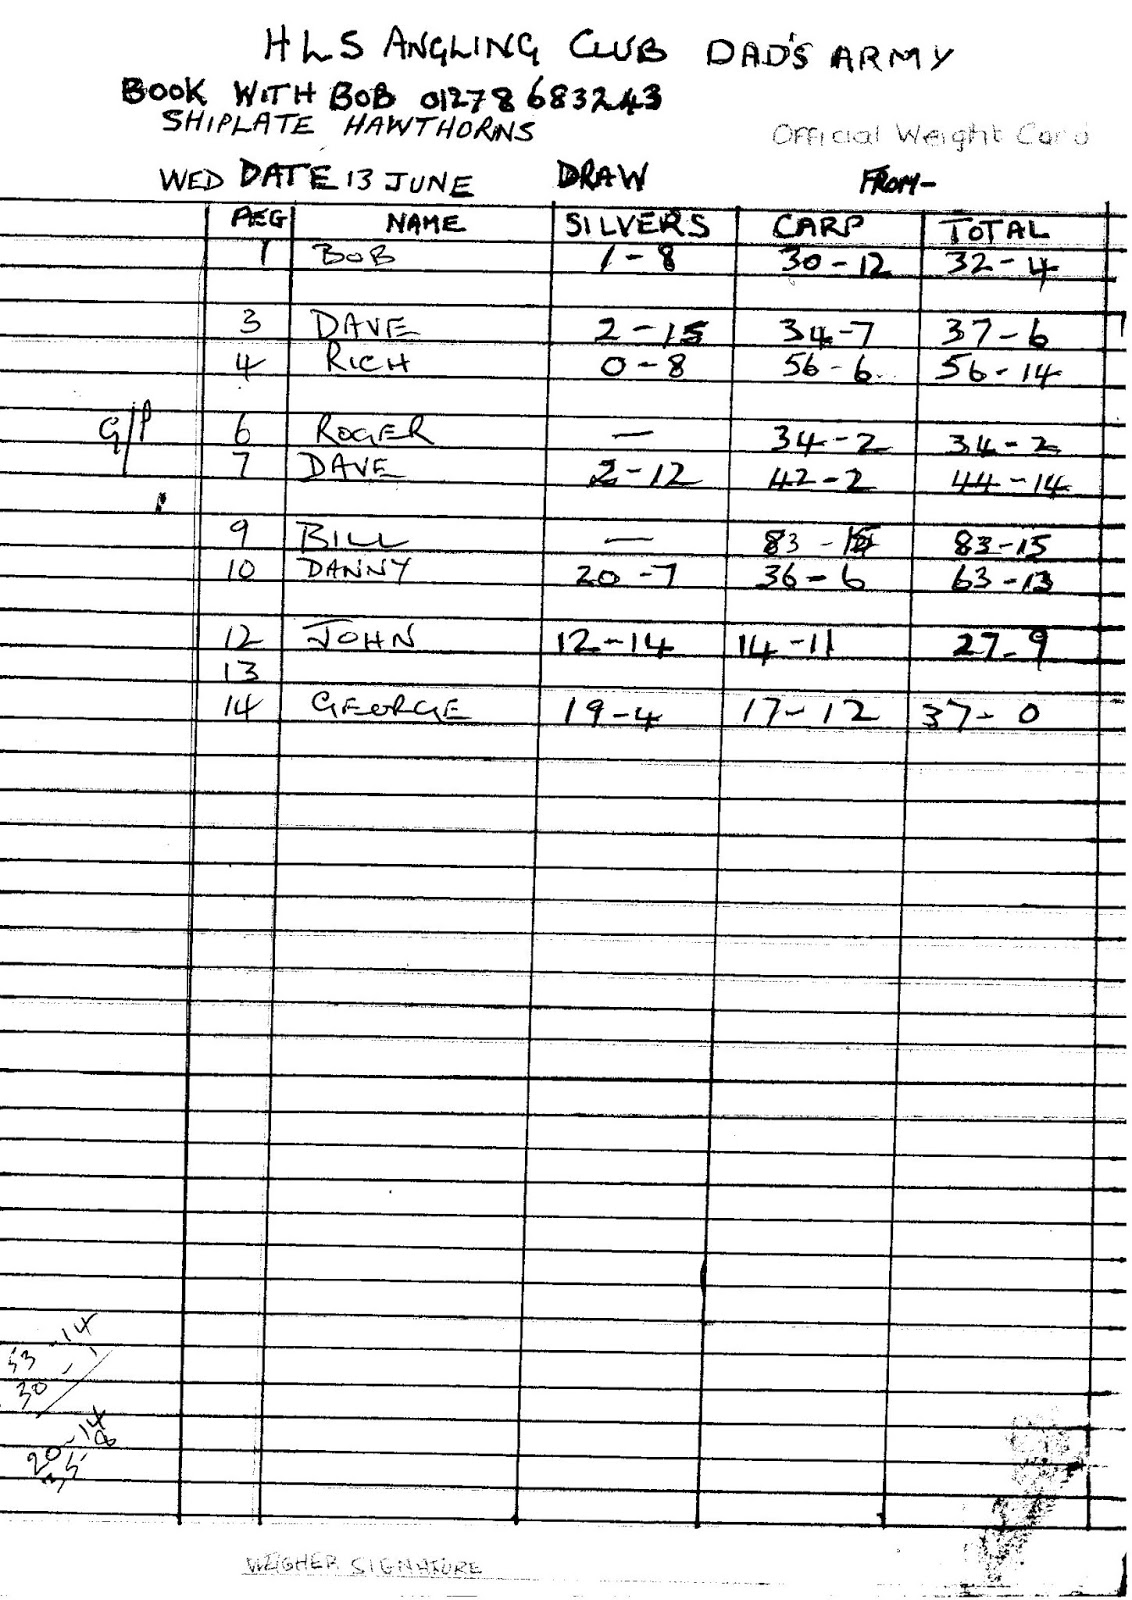 HLS ANGLING CLUB DAD'S ARMY
BOOK WITH BOB 01278 683243
SHIPLATE HAWTHORNS
Official Weight Card
WED DATE 13 JUNE DRAW FROM-
PEG NAME SILVERS CARP TOTAL
1 BOB 1-8 30-12 32-4
3 DAVE 2-15 34-7 37-6
4 RICH 0-8 56-6 56-14
G/P 6 ROGER — 34-2 34-2
7 DAVE 2-12 42-2 44-14
9 BILL — 83-15 83-15
10 DANNY 20-7 36-6 63-13
12 JOHN 12-14 14-11 27-9
13
14 GEORGE 19-4 17-12 37-0
53-14
30-1
20-14
WEIGHER SIGNATURE